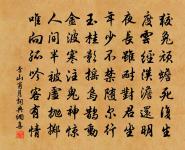 狡兔頑蟾死復生
度雲經漢澹還明
夜長雖耐對君坐
年少不禁隨爾行
玉桂影搖烏鵲動
金波寒注鬼神驚
人間半被虛拋擲
唯向孤吟客有情
李山甫月詞典網書